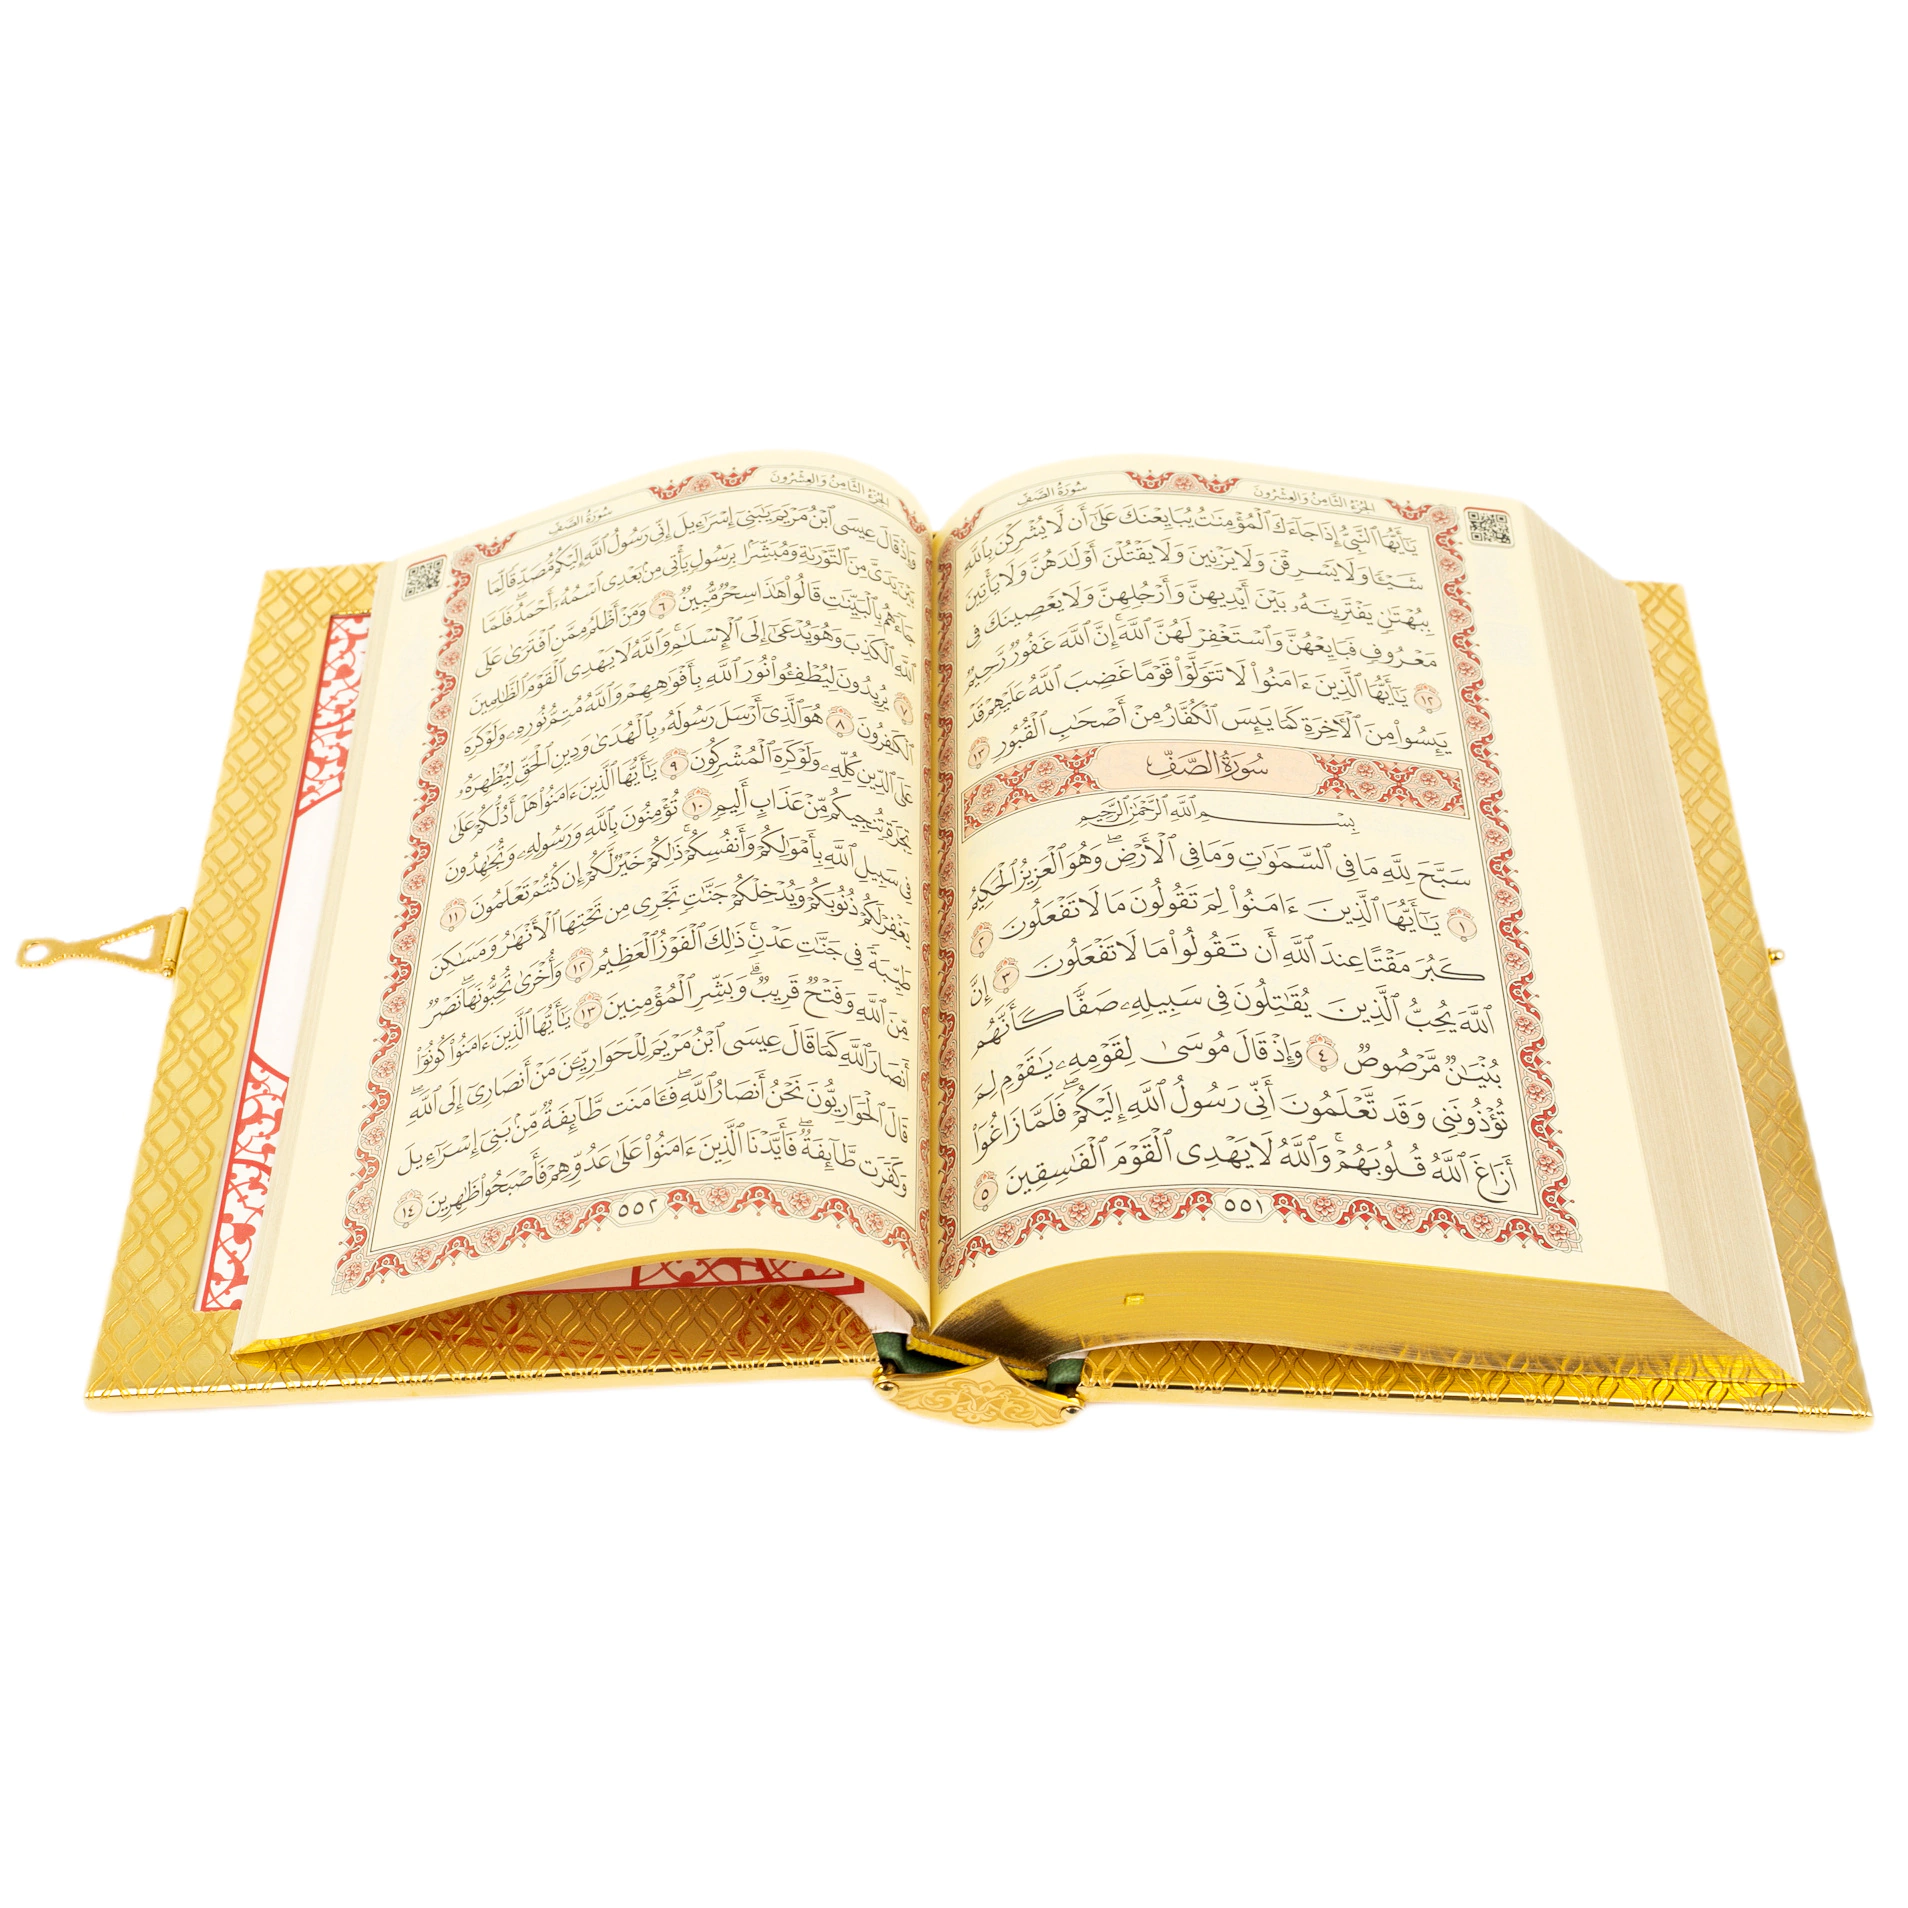 الجزء الثامن والعشرون
سورة الصف
يَـٰٓأَيُّهَا ٱلنَّبِيُّ إِذَا جَآءَكَ ٱلْمُؤْمِنَـٰتُ يُبَايِعْنَكَ عَلَىٰٓ أَن لَّا يُشْرِكْنَ بِٱللَّهِ
شَيْـًٔا وَلَا يَسْرِقْنَ وَلَا يَزْنِينَ وَلَا يَقْتُلْنَ أَوْلَـٰدَهُنَّ وَلَا يَأْتِينَ
بِبُهْتَـٰنٍ يَفْتَرِينَهُۥ بَيْنَ أَيْدِيهِنَّ وَأَرْجُلِهِنَّ وَلَا يَعْصِينَكَ فِى
مَعْرُوفٍ فَبَايِعْهُنَّ وَٱسْتَغْفِرْ لَهُنَّ ٱللَّهَ ۖ إِنَّ ٱللَّهَ غَفُورٌ رَّحِيمٌ
١٢ يَـٰٓأَيُّهَا ٱلَّذِينَ ءَامَنُوا۟ لَا تَتَوَلَّوْا۟ قَوْمًا غَضِبَ ٱللَّهُ عَلَيْهِمْ قَدْ
يَئِسُوا۟ مِنَ ٱلْـَٔاخِرَةِ كَمَا يَئِسَ ٱلْكُفَّارُ مِنْ أَصْحَـٰبِ ٱلْقُبُورِ ١٣
سُورَةُ الصَّفِّ
بِسْمِ ٱللَّهِ ٱلرَّحْمَـٰنِ ٱلرَّحِيمِ
سَبَّحَ لِلَّهِ مَا فِى ٱلسَّمَـٰوَٰتِ وَمَا فِى ٱلْأَرْضِ ۖ وَهُوَ ٱلْعَزِيزُ ٱلْحَكِيمُ
١ يَـٰٓأَيُّهَا ٱلَّذِينَ ءَامَنُوا۟ لِمَ تَقُولُونَ مَا لَا تَفْعَلُونَ ٢
كَبُرَ مَقْتًا عِندَ ٱللَّهِ أَن تَقُولُوا۟ مَا لَا تَفْعَلُونَ ٣ إِنَّ
ٱللَّهَ يُحِبُّ ٱلَّذِينَ يُقَـٰتِلُونَ فِى سَبِيلِهِۦ صَفًّا كَأَنَّهُم
بُنْيَـٰنٌ مَّرْصُوصٌ ٤ وَإِذْ قَالَ مُوسَىٰ لِقَوْمِهِۦ يَـٰقَوْمِ لِمَ
تُؤْذُونَنِى وَقَد تَّعْلَمُونَ أَنِّى رَسُولُ ٱللَّهِ إِلَيْكُمْ ۖ فَلَمَّا زَاغُوٓا۟
أَزَاغَ ٱللَّهُ قُلُوبَهُمْ ۚ وَٱللَّهُ لَا يَهْدِى ٱلْقَوْمَ ٱلْفَـٰسِقِينَ ٥
٥٥١
الجزء الثامن والعشرون
سورة الصف
وَإِذْ قَالَ عِيسَى ٱبْنُ مَرْيَمَ يَـٰبَنِىٓ إِسْرَٰٓءِيلَ إِنِّى رَسُولُ ٱللَّهِ إِلَيْكُم مُّصَدِّقًا لِّمَا
بَيْنَ يَدَىَّ مِنَ ٱلتَّوْرَىٰةِ وَمُبَشِّرًۢا بِرَسُولٍ يَأْتِى مِنۢ بَعْدِى ٱسْمُهُۥٓ أَحْمَدُ ۖ فَلَمَّا
جَآءَهُم بِٱلْبَيِّنَـٰتِ قَالُوا۟ هَـٰذَا سِحْرٌ مُّبِينٌ ٦ وَمَنْ أَظْلَمُ مِمَّنِ ٱفْتَرَىٰ عَلَى
ٱللَّهِ ٱلْكَذِبَ وَهُوَ يُدْعَىٰٓ إِلَى ٱلْإِسْلَـٰمِ ۚ وَٱللَّهُ لَا يَهْدِى ٱلْقَوْمَ ٱلظَّـٰلِمِينَ
٧ يُرِيدُونَ لِيُطْفِـُٔوا۟ نُورَ ٱللَّهِ بِأَفْوَٰهِهِمْ وَٱللَّهُ مُتِمُّ نُورِهِۦ وَلَوْ كَرِهَ
ٱلْكَـٰفِرُونَ ٨ هُوَ ٱلَّذِىٓ أَرْسَلَ رَسُولَهُۥ بِٱلْهُدَىٰ وَدِينِ ٱلْحَقِّ لِيُظْهِرَهُۥ
عَلَى ٱلدِّينِ كُلِّهِۦ وَلَوْ كَرِهَ ٱلْمُشْرِكُونَ ٩ يَـٰٓأَيُّهَا ٱلَّذِينَ ءَامَنُوا۟ هَلْ أَدُلُّكُمْ عَلَىٰ
تِجَـٰرَةٍ تُنجِيكُم مِّنْ عَذَابٍ أَلِيمٍ ١٠ تُؤْمِنُونَ بِٱللَّهِ وَرَسُولِهِۦ وَتُجَـٰهِدُونَ
فِى سَبِيلِ ٱللَّهِ بِأَمْوَٰلِكُمْ وَأَنفُسِكُمْ ۚ ذَٰلِكُمْ خَيْرٌ لَّكُمْ إِن كُنتُمْ تَعْلَمُونَ ١١
يَغْفِرْ لَكُمْ ذُنُوبَكُمْ وَيُدْخِلْكُمْ جَنَّـٰتٍ تَجْرِى مِن تَحْتِهَا ٱلْأَنْهَـٰرُ وَمَسَـٰكِنَ
طَيِّبَةً فِى جَنَّـٰتِ عَدْنٍ ۚ ذَٰلِكَ ٱلْفَوْزُ ٱلْعَظِيمُ ١٢ وَأُخْرَىٰ تُحِبُّونَهَا ۖ نَصْرٌ
مِّنَ ٱللَّهِ وَفَتْحٌ قَرِيبٌ ۗ وَبَشِّرِ ٱلْمُؤْمِنِينَ ١٣ يَـٰٓأَيُّهَا ٱلَّذِينَ ءَامَنُوا۟ كُونُوٓا۟
أَنصَارَ ٱللَّهِ كَمَا قَالَ عِيسَى ٱبْنُ مَرْيَمَ لِلْحَوَارِيِّـۧنَ مَنْ أَنصَارِىٓ إِلَى ٱللَّهِ ۖ
قَالَ ٱلْحَوَارِيُّونَ نَحْنُ أَنصَارُ ٱللَّهِ ۖ فَـَٔامَنَت طَّآئِفَةٌ مِّنۢ بَنِىٓ إِسْرَٰٓءِيلَ
وَكَفَرَت طَّآئِفَةٌ ۖ فَأَيَّدْنَا ٱلَّذِينَ ءَامَنُوا۟ عَلَىٰ عَدُوِّهِمْ فَأَصْبَحُوا۟ ظَـٰهِرِينَ ١٤
٥٥٢